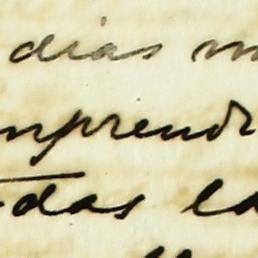 dias m
mprendr
das la